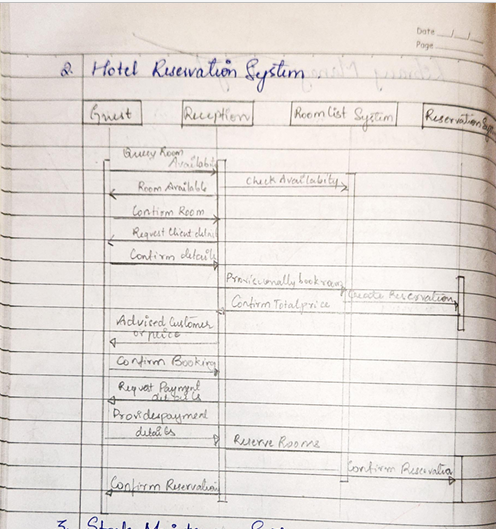 Date
Page
2. Hotel Reservation System
Guest Reception Room List System Reservation
Query Room
Availability
Check Availabity
Room Available
Confirm Room
Request Client detail
Confirm details
Provisionally book room
Create Reservation
Confirm Total price
Advised Customer
or price
Confirm Booking
Request Payment
details
Provides payment
details
Reserve Rooms
Confirm Reservatio
Confirm Reservation
3.